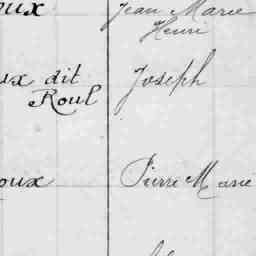 oux Jean Marie
Henri
ux dit Joseph
Roul
oux Pierre Marie